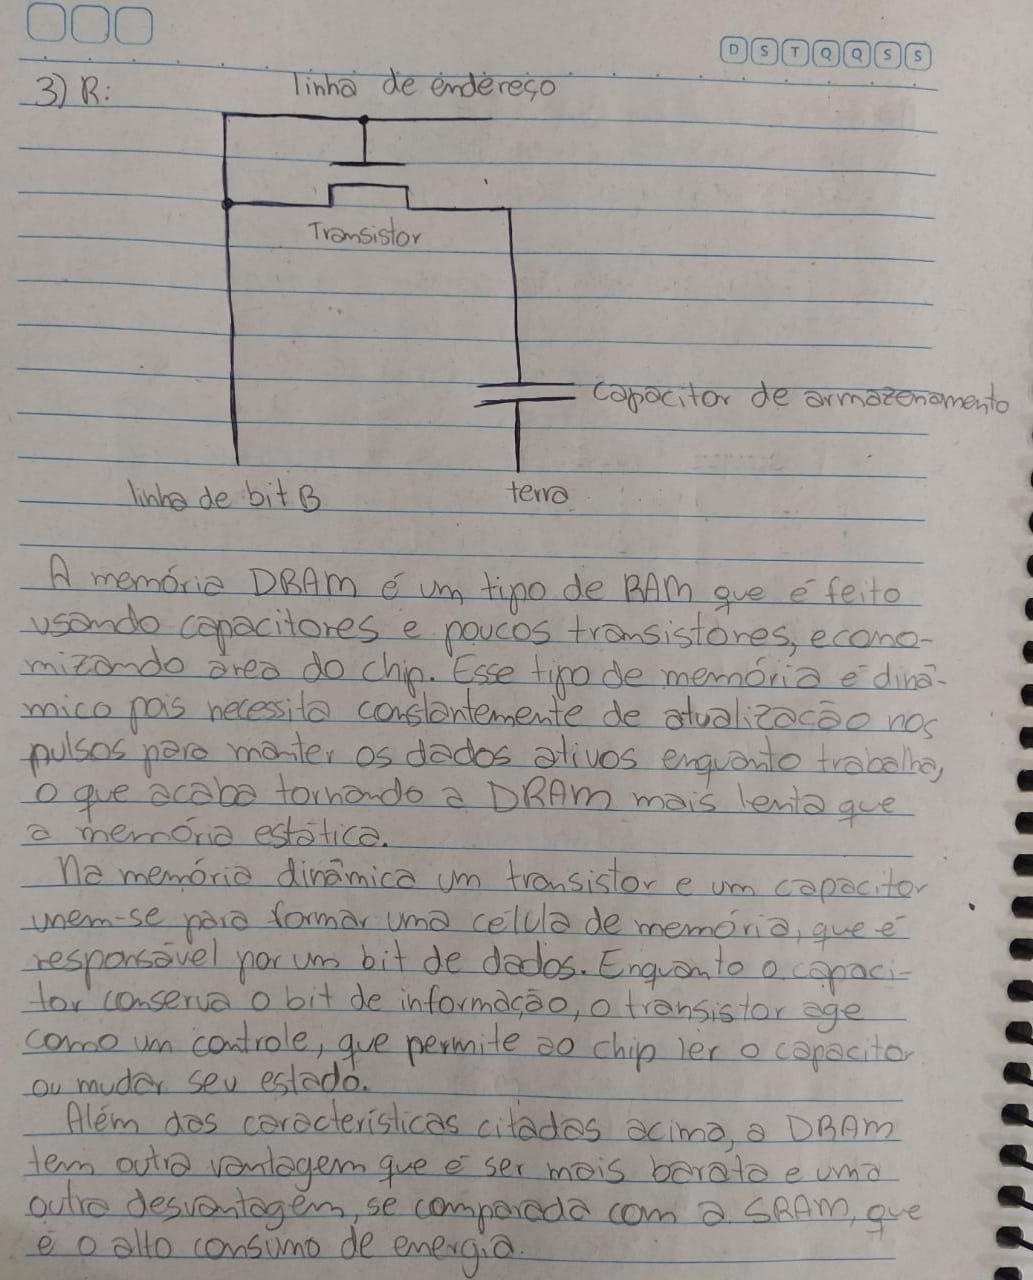 D S T Q Q S S
3) R:
linha de endereço
Transistor
capacitor de armazenamento
linha de bit B
terra
A memória DRAM é um tipo de RAM que é feito
usando capacitores e poucos transistores, econo-
mizando área do chip. Esse tipo de memória é dinâ-
mico pois necessita constantemente de atualização nos
pulsos para manter os dados ativos enquanto trabalha,
o que acaba tornando a DRAM mais lenta que
a memória estática.
Na memória dinâmica um transistor e um capacitor
unem-se para formar uma célula de memória, que é
responsável por um bit de dados. Enquanto o capaci-
tor conserva o bit de informação, o transistor age
como um controle, que permite ao chip ler o capacitor
ou mudar seu estado.
Além das características citadas acima, a DRAM
tem outra vantagem que é ser mais barata e uma
outra desvantagem, se comparada com a SRAM, que
é o alto consumo de energia.